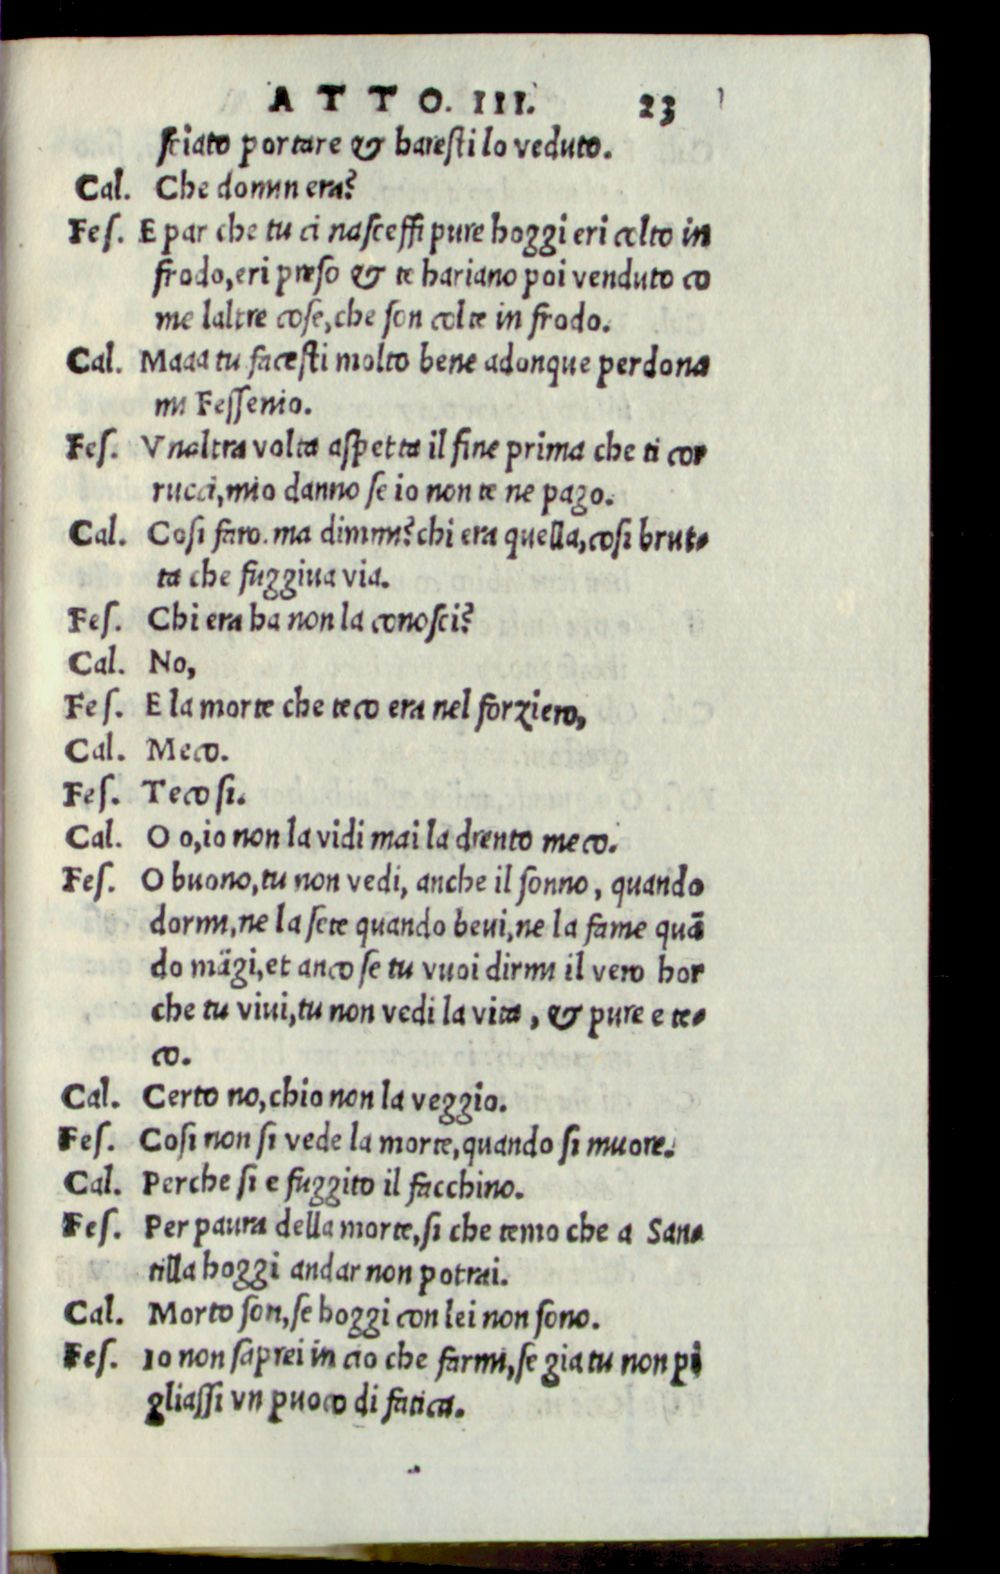 ATTO. III. 23
sciato portare & harestilo veduto.
Cal. Che domin era?
Fes. E par che tu ci nascessi pure hoggi eri colto in
frodo, eri preso & te hariano poi venduto co
me laltre cose, che son colte in frodo.
Cal. Maaa tu facesti molto bene adonque perdona
mi Fessenio.
Fes. Vnaltra volta aspetta il fine prima che ti cor
rucci, mio danno se io non te ne pago.
Cal. Cosi faro. ma dimmi? chi era quella, cosi brut-
ta che fuggiua via.
Fes. Chi era ha non la conosci?
Cal. No,
Fes. E la morte che teco era nel forziero,
Cal. Meco.
Fes. Teco si.
Cal. O o, io non la vidi mai la drento meco.
Fes. O buono, tu non vedi, anche il sonno, quando
dormi, ne la sete quando beui, ne la fame quā
do māgi, et anco se tu vuoi dirmi il vero hor
che tu viui, tu non vedi la vita, & pure e te-
co.
Cal. Certo no, chio non la veggio.
Fes. Cosi non si vede la morte, quando si muore.
Cal. Perche si e fuggito il facchino.
Fes. Per paura della morte, si che temo che a San-
tilla hoggi andar non potrai.
Cal. Morto son, se hoggi con lei non sono.
Fes. Io non saprei in cio che farmi, se gia tu non pi
gliassi vn puoco di fatica.